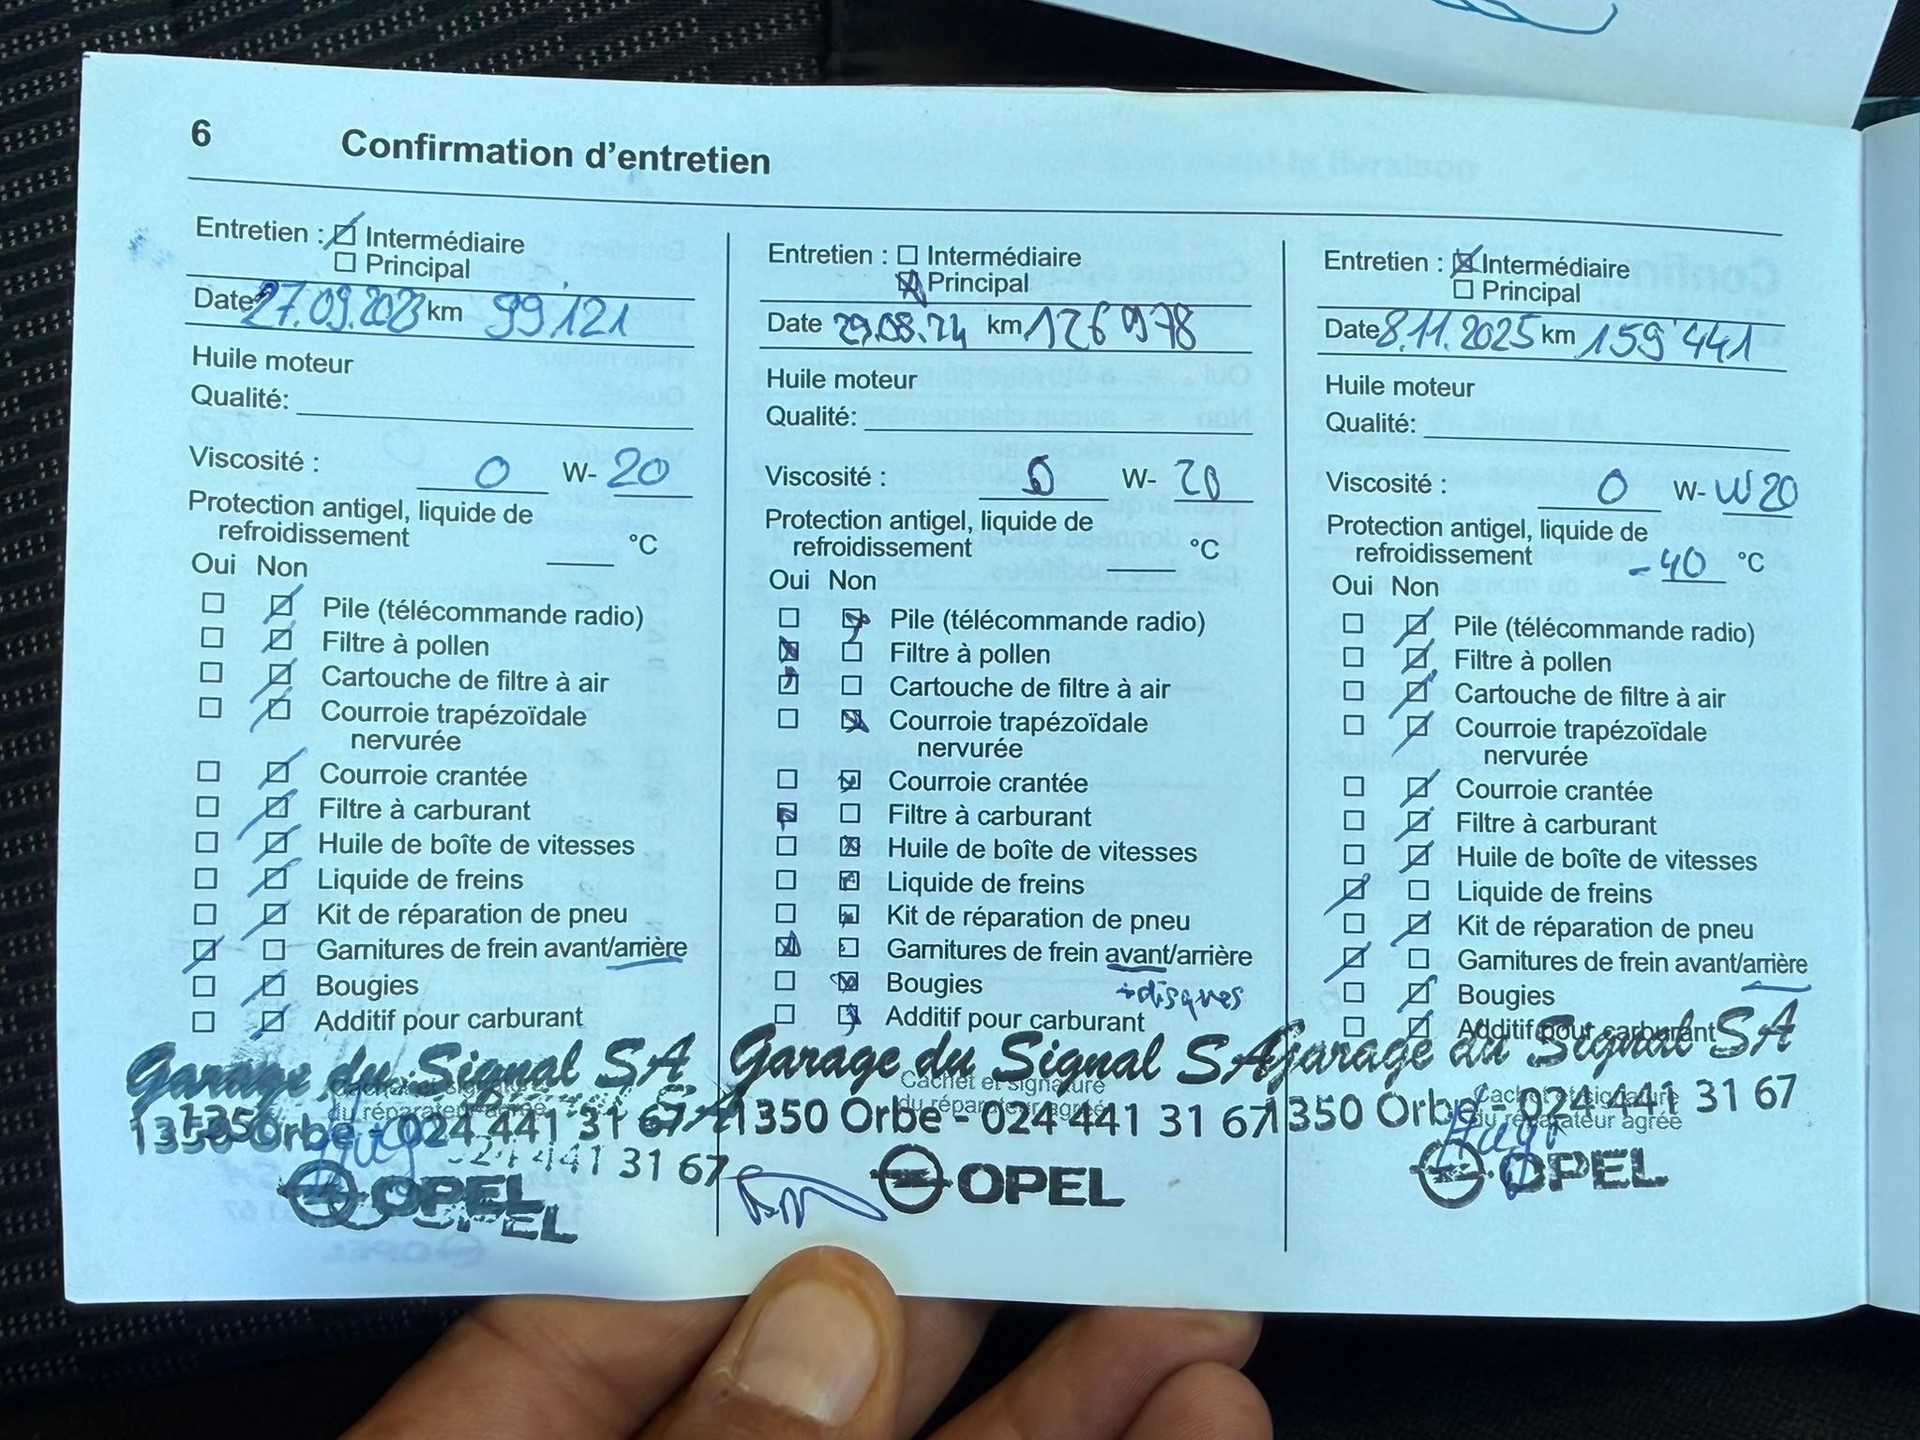 6 Confirmation d'entretien
Entretien : Intermédiaire
Principal
Date 27.09.2023 km 99121
Huile moteur
Qualité:
Viscosité : 0 W- 20
Protection antigel, liquide de
refroidissement °C
Oui Non
Pile (télécommande radio)
Filtre à pollen
Cartouche de filtre à air
Courroie trapézoïdale
nervurée
Courroie crantée
Filtre à carburant
Huile de boîte de vitesses
Liquide de freins
Kit de réparation de pneu
Garnitures de frein avant/arrière
Bougies
Additif pour carburant
Cachet et signature
du réparateur agréé
Garage du Signal SA
1350 Orbe - 024 441 31 67
024 441 31 67
OPEL
OPEL
Entretien : Intermédiaire
Principal
Date 29.08.24 km 126978
Huile moteur
Qualité:
Viscosité : 0 W- 20
Protection antigel, liquide de
refroidissement °C
Oui Non
Pile (télécommande radio)
Filtre à pollen
Cartouche de filtre à air
Courroie trapézoïdale
nervurée
Courroie crantée
Filtre à carburant
Huile de boîte de vitesses
Liquide de freins
Kit de réparation de pneu
Garnitures de frein avant/arrière
Bougies +disques
Additif pour carburant
Garage du Signal SA
Cachet et signature
du réparateur agréé
1350 Orbe - 024 441 31 67
OPEL
Entretien : Intermédiaire
Principal
Date 8.11.2025 km 159'441
Huile moteur
Qualité:
Viscosité : 0 W- W20
Protection antigel, liquide de
refroidissement -40 °C
Oui Non
Pile (télécommande radio)
Filtre à pollen
Cartouche de filtre à air
Courroie trapézoïdale
nervurée
Courroie crantée
Filtre à carburant
Huile de boîte de vitesses
Liquide de freins
Kit de réparation de pneu
Garnitures de frein avant/arrière
Bougies
Additif pour carburant
Garage du Signal SA
Cachet et signature
1350 Orbe - 024 441 31 67
du réparateur agréé
Hugo
OPEL